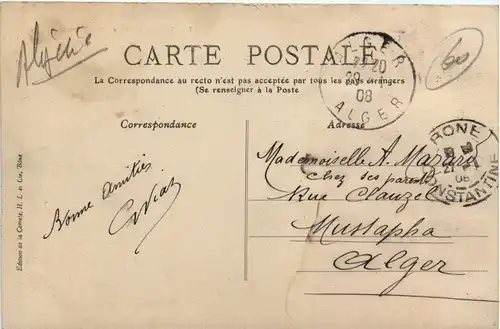 Algérie
CARTE POSTALE
La Correspondance au recto n'est pas acceptée par tous les pays étrangers
(Se renseigner à la Poste
Correspondance
Adresse
ALGER
08
ALGER
60
BONE
27
08
CONSTANTINE
Mademoiselle A.
Chez ses parents
Rue Clauzel
Mustapha
Alger
Bonne Amitiés
Edition de la Comète, H. L. & Cie, Bône